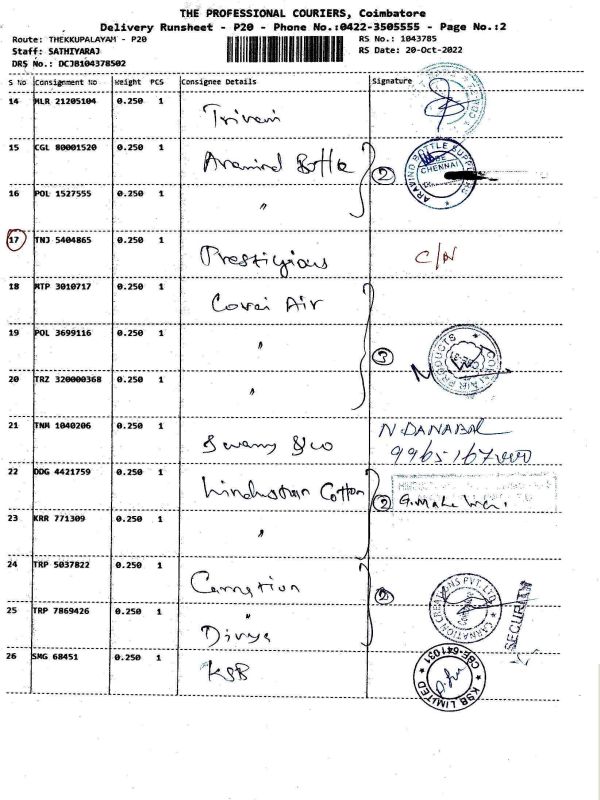 THE PROFESSIONAL COURIERS, Coimbatore
Delivery Runsheet - P20 - Phone No.:0422-3505555 - Page No.:2
Route: THEKKUPALAYAM - P20 RS No.: 1043785
Staff: SATHIYARAJ RS Date: 20-Oct-2022
DRS No.: DCJB104378502
S No Consignment No Weight PCS Consignee Details Signature
14 MLR 21205104 0.250 1 Triveni
15 CGL 80001520 0.250 1 Aravind Bottle 2 ARAVIND BOTTLE SUPPLIERS CHENNAI
16 POL 1527555 0.250 1 "
17 TNJ 5404865 0.250 1 Prestigious C/N
18 MTP 3010717 0.250 1 Covai Air
19 POL 3699116 0.250 1 " 3 COVAI AIR PRODUCTS
20 TRZ 320000368 0.250 1 "
21 TNM 1040206 0.250 1 Swamy & co N. DANABAL
22 DDG 4421759 0.250 1 Hindustan Cotton 2
23 KRR 771309 0.250 1 "
24 TRP 5037822 0.250 1 Carnation 2 CARNATION CREATIONS PVT. LTD. SECURITY
25 TRP 7869426 0.250 1 " Divya
26 SMG 68451 0.250 1 KSB KSB LIMITED CBE-641031